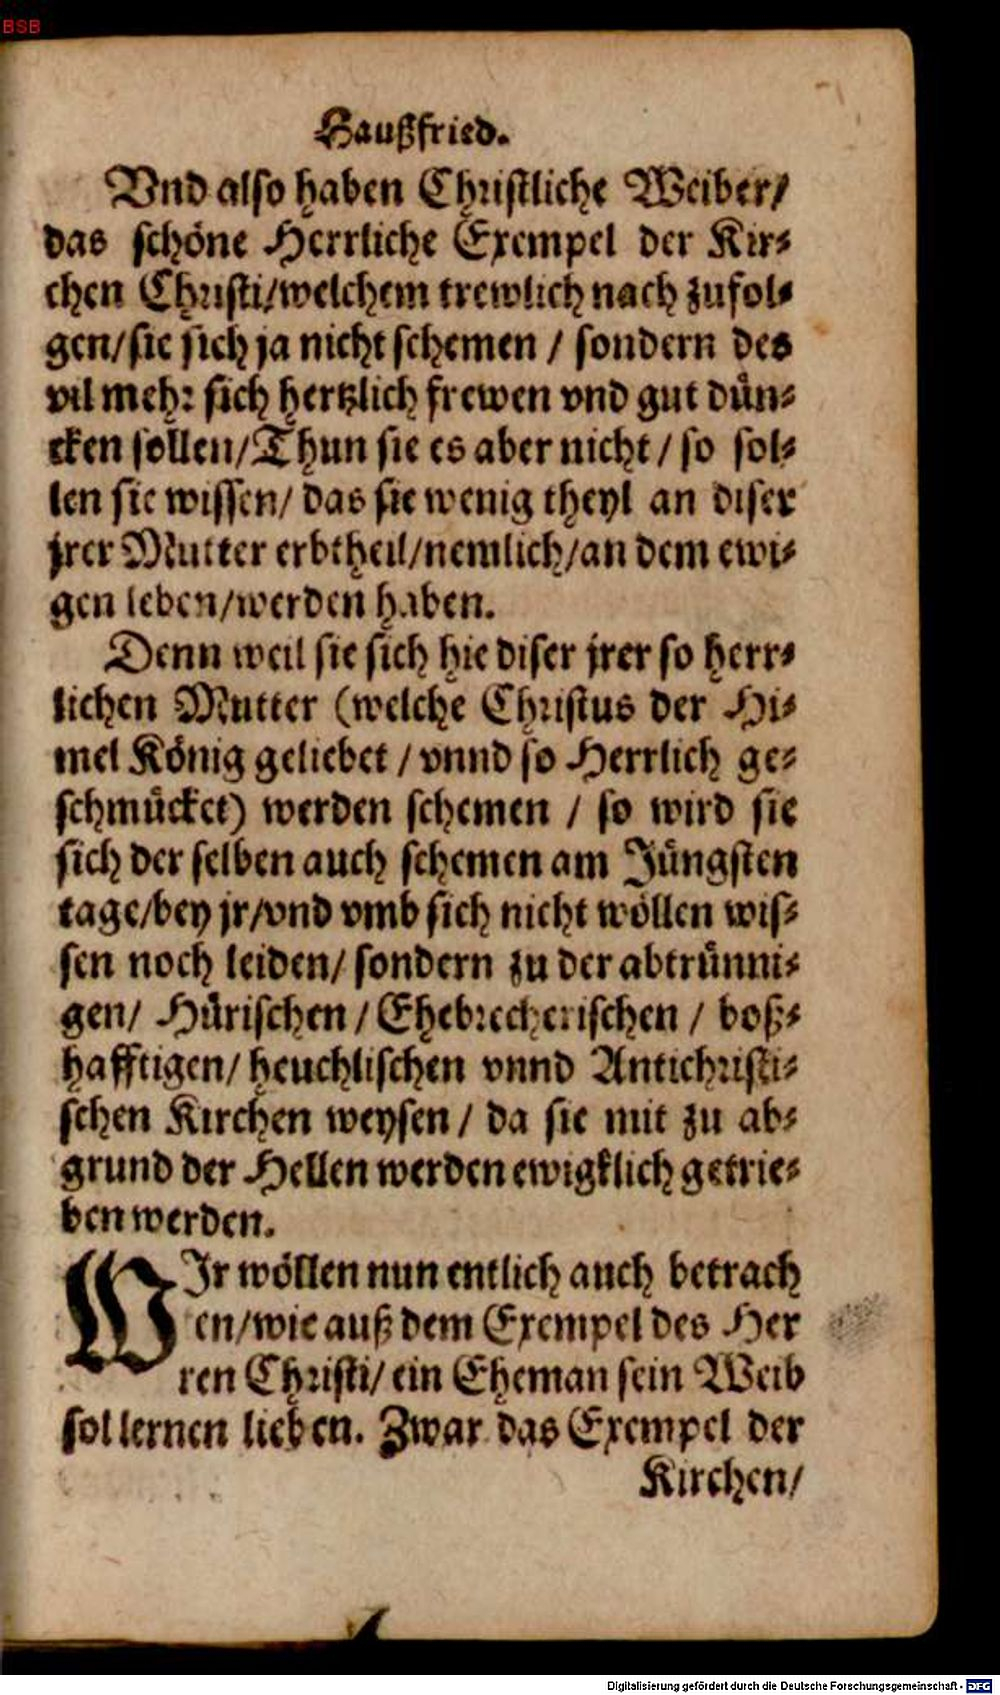 BSB
Haußfried.
Vnd also haben Christliche Weiber/
das schöne Herrliche Exempel der Kir-
chen Christi/welchem trewlich nach zufol-
gen/sie sich ja nicht schemen / sondern des
vil mehr sich hertzlich frewen vnd gut dün-
cken sollen/Thun sie es aber nicht / so sol-
len sie wissen/ das sie wenig theyl an diser
jrer Mutter erbtheil/nemlich/an dem ewi-
gen leben/werden haben.
Denn weil sie sich hie diser jrer so herr-
lichen Mutter (welche Christus der Hi-
mel König geliebet / vnnd so Herrlich ge-
schmücket) werden schemen / so wird sie
sich der selben auch schemen am Jüngsten
tage/bey jr/vnd vmb sich nicht wöllen wis-
sen noch leiden/ sondern zu der abtrünni-
gen/ Hürischen / Ehebrecherischen / boß-
hafftigen/ heuchlischen vnnd Antichristi-
schen Kirchen weysen / da sie mit zu ab-
grund der Hellen werden ewigklich getrie-
ben werden.
WJr wöllen nun entlich auch betrach
en/wie auß dem Exempel des Her
ren Christi/ ein Eheman sein Weib
sol lernen lieben. Zwar das Exempel der
Kirchen/
Digitalisierung gefördert durch die Deutsche Forschungsgemeinschaft - DFG